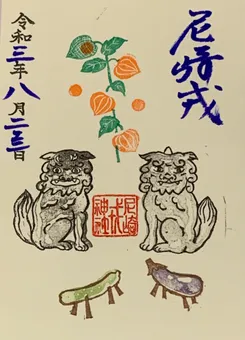 尼崎戎
令和三年八月二三日
尼崎
戎
神社